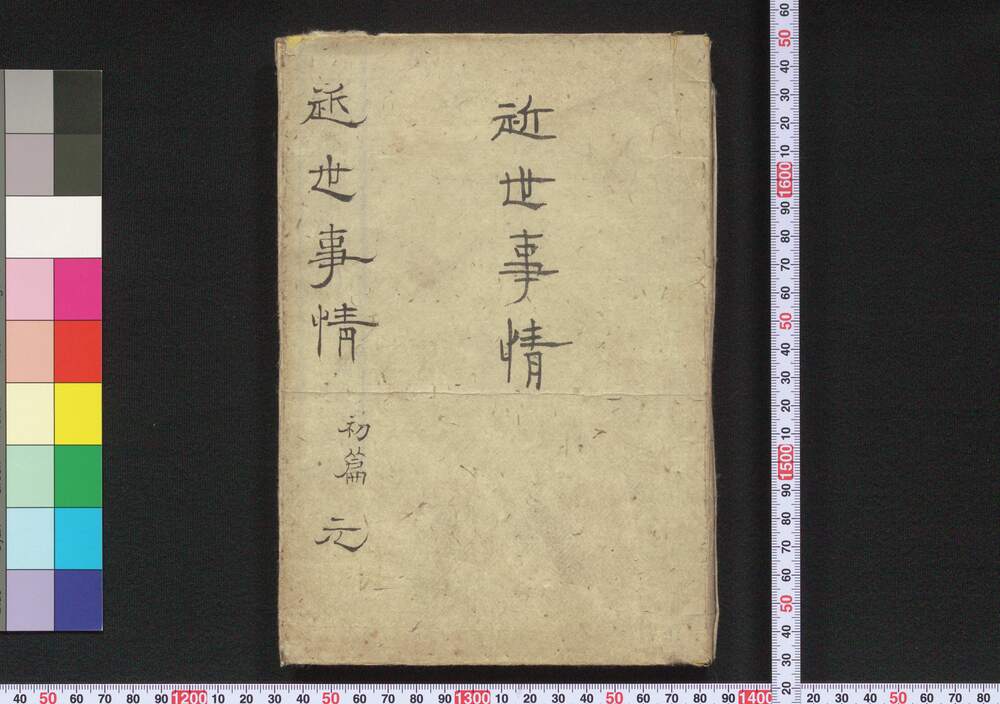 近世事情
近世事情 初篇 元
60
50
40
30
20
10
1600
90
80
70
60
50
40
30
20
10
1500
90
80
70
60
50
40
30
20
40 50 60 70 80 90 1200 10 20 30 40 50 60 70 80 90 1300 10 20 30 40 50 60 70 80 90 1400 10 20 30 40 50 60 70 80